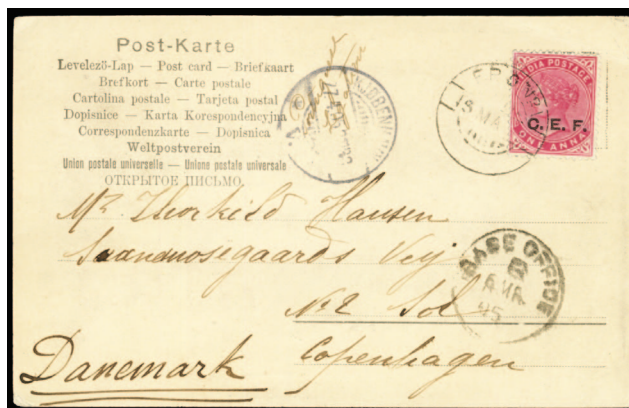 Post-Karte
Levelezö-Lap — Post card — Briefkaart
Brefkort — Carte postale
Cartolina postale — Tarjeta postal
Dopisnice — Karta Korespondencyjna
Correspondenzkarte — Dopisnica
Weltpostverein
Union postale universelle — Unione postale universale
ОТКРЫТОЕ ПИСЬМО.
INDIA POSTAGE
C. E. F.
ONE ANNA
KJØBENHAVN
BASE OFFICE
B
5 MR
05
Mr. Thorkild Hansen
Vej
No 2 Sol
Copenhagen
Danemark